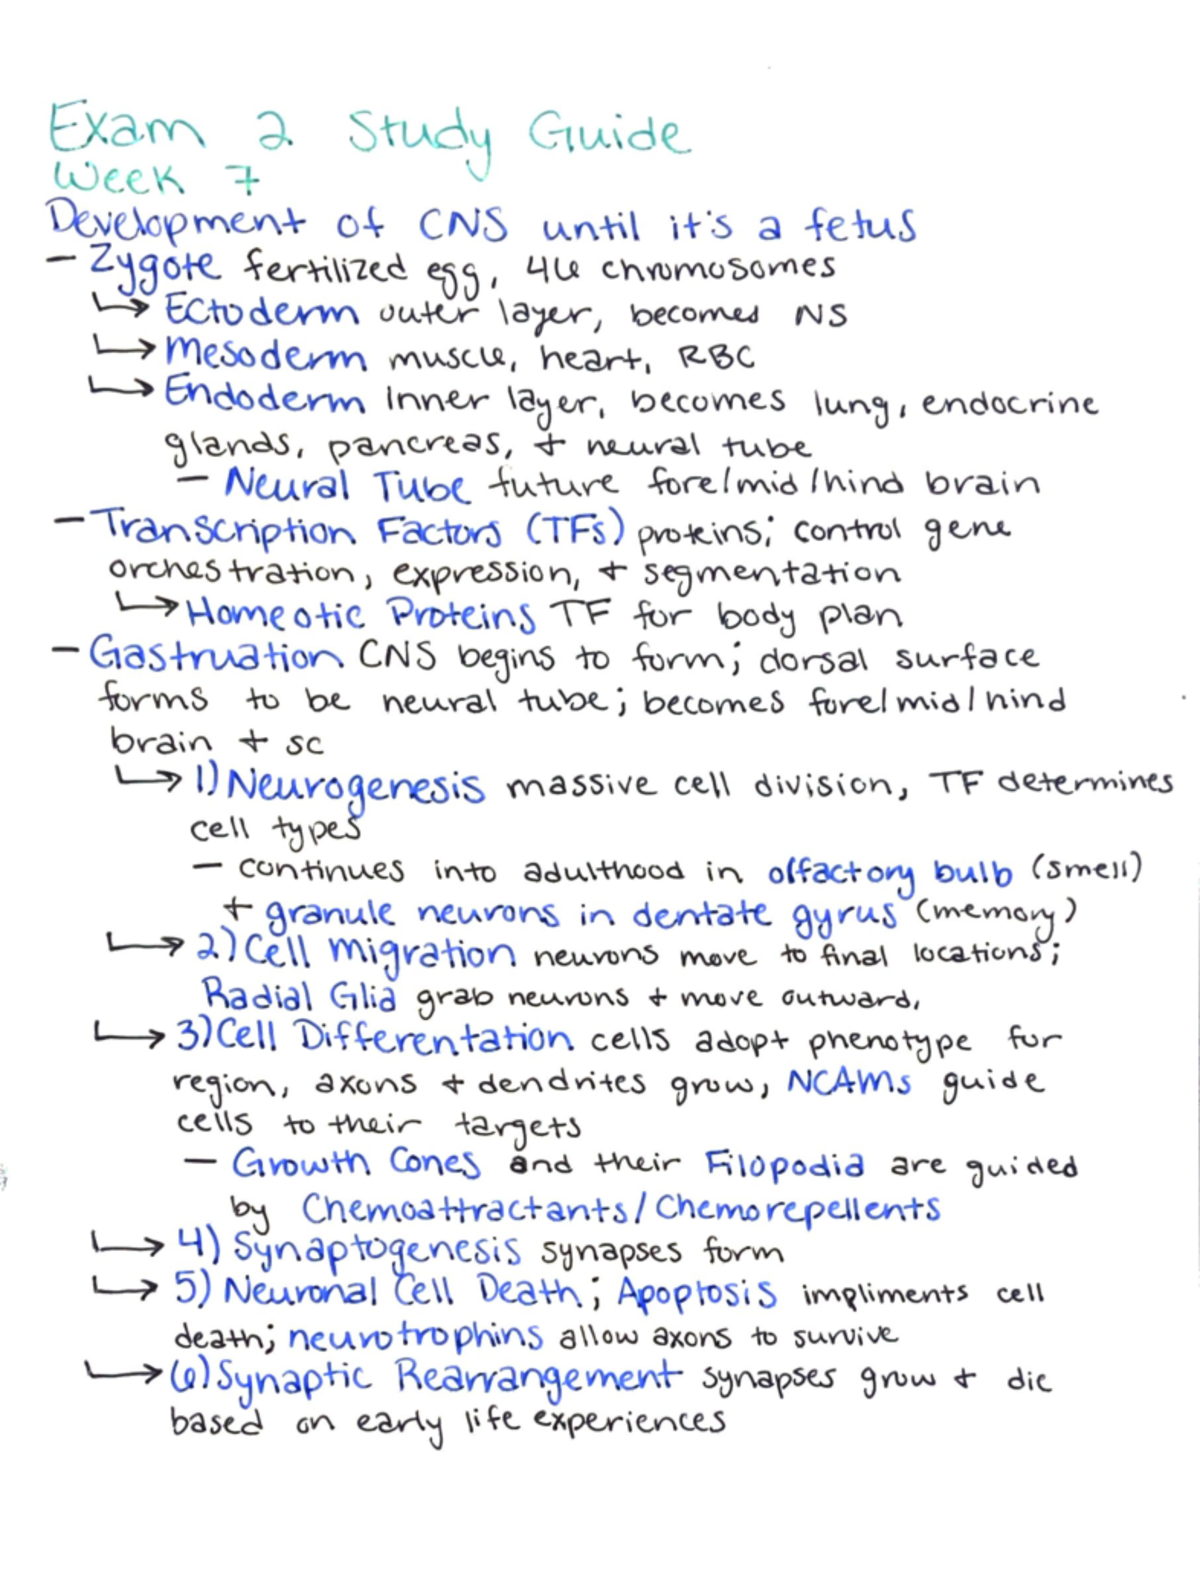 Exam 2 Study Guide
Week 7
Development of CNS until it's a fetus
- Zygote fertilized egg, 46 chromosomes
↳ Ectoderm outer layer, becomes NS
↳ Mesoderm muscle, heart, RBC
↳ Endoderm inner layer, becomes lung, endocrine
glands, pancreas, + neural tube
- Neural Tube future fore/mid/hind brain
- Transcription Factors (TFs) proteins; control gene
orchestration, expression, + segmentation
↳ Homeotic Proteins TF for body plan
- Gastruation CNS begins to form; dorsal surface
forms to be neural tube; becomes fore/mid/hind
brain + sc
↳ 1) Neurogenesis massive cell division, TF determines
cell types
- continues into adulthood in olfactory bulb (smell)
+ granule neurons in dentate gyrus (memory)
↳ 2.) Cell Migration neurons move to final locations;
Radial Glia grab neurons + move outward,
↳ 3) Cell Differentation cells adopt phenotype for
region, axons + dendrites grow, NCAMs guide
cells to their targets
- Growth Cones and their Filopodia are guided
by Chemoattractants/Chemorepellents
↳ 4) Synaptogenesis synapses form
↳ 5) Neuronal Cell Death; Apoptosis impliments cell
death; neurotrophins allow axons to survive
↳ 6) Synaptic Rearrangement synapses grow + die
based on early life experiences